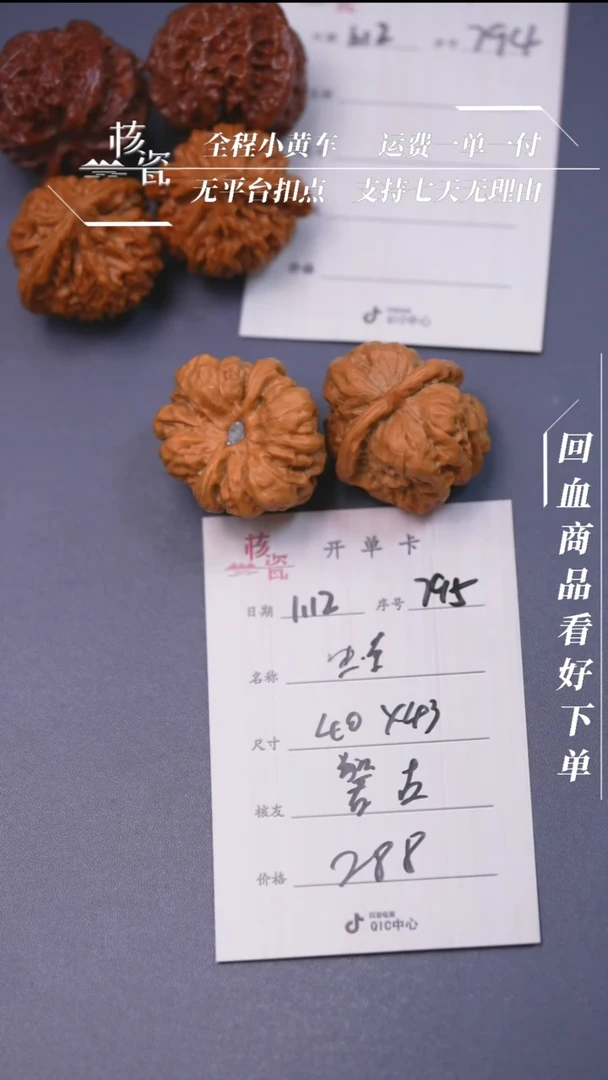 核瓷
全程小黄车 运费一单一付
无平台扣点 支持七天无理由
QIC中心
回血商品看好下单
核瓷
开单卡
日期 1.12 序号 795
名称
尺寸 40X43
核友
价格 288
抖音电商
QIC中心